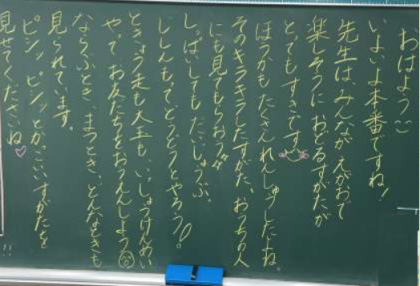 おはよう
いよいよ本番ですね!
先生は、みんながえがおで
楽しそうに おどるすがたが
とてもすきです
ほうかも たくさんれんしゅうしたよね。
そのキラキラしたすがた、おうちの人
にも見てもらおう
しっぱいしても だいじょうぶ。
じしんもって、どうどうとやろう!
ときょう走も大玉も、いっしょうけんめい
やって お友だちをおうえんしよう
ならぶとき、まつとき、どんなときも
見られています。
ピシッ、ピシッとかっこいいすがたを
見せてくださいね♡!!